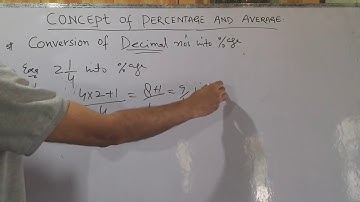 CONCEPT OF PERCENTAGE AND AVERAGE.
* Conversion of Decimal no's into %age
Exp 2 1/4 into %age
(4×2+1)/4 = (8+1)/4 = 9